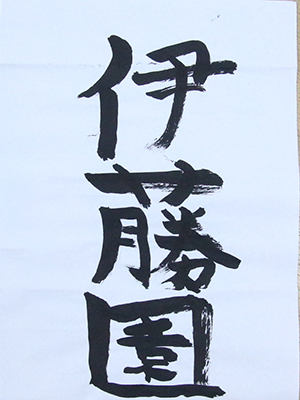 伊藤園